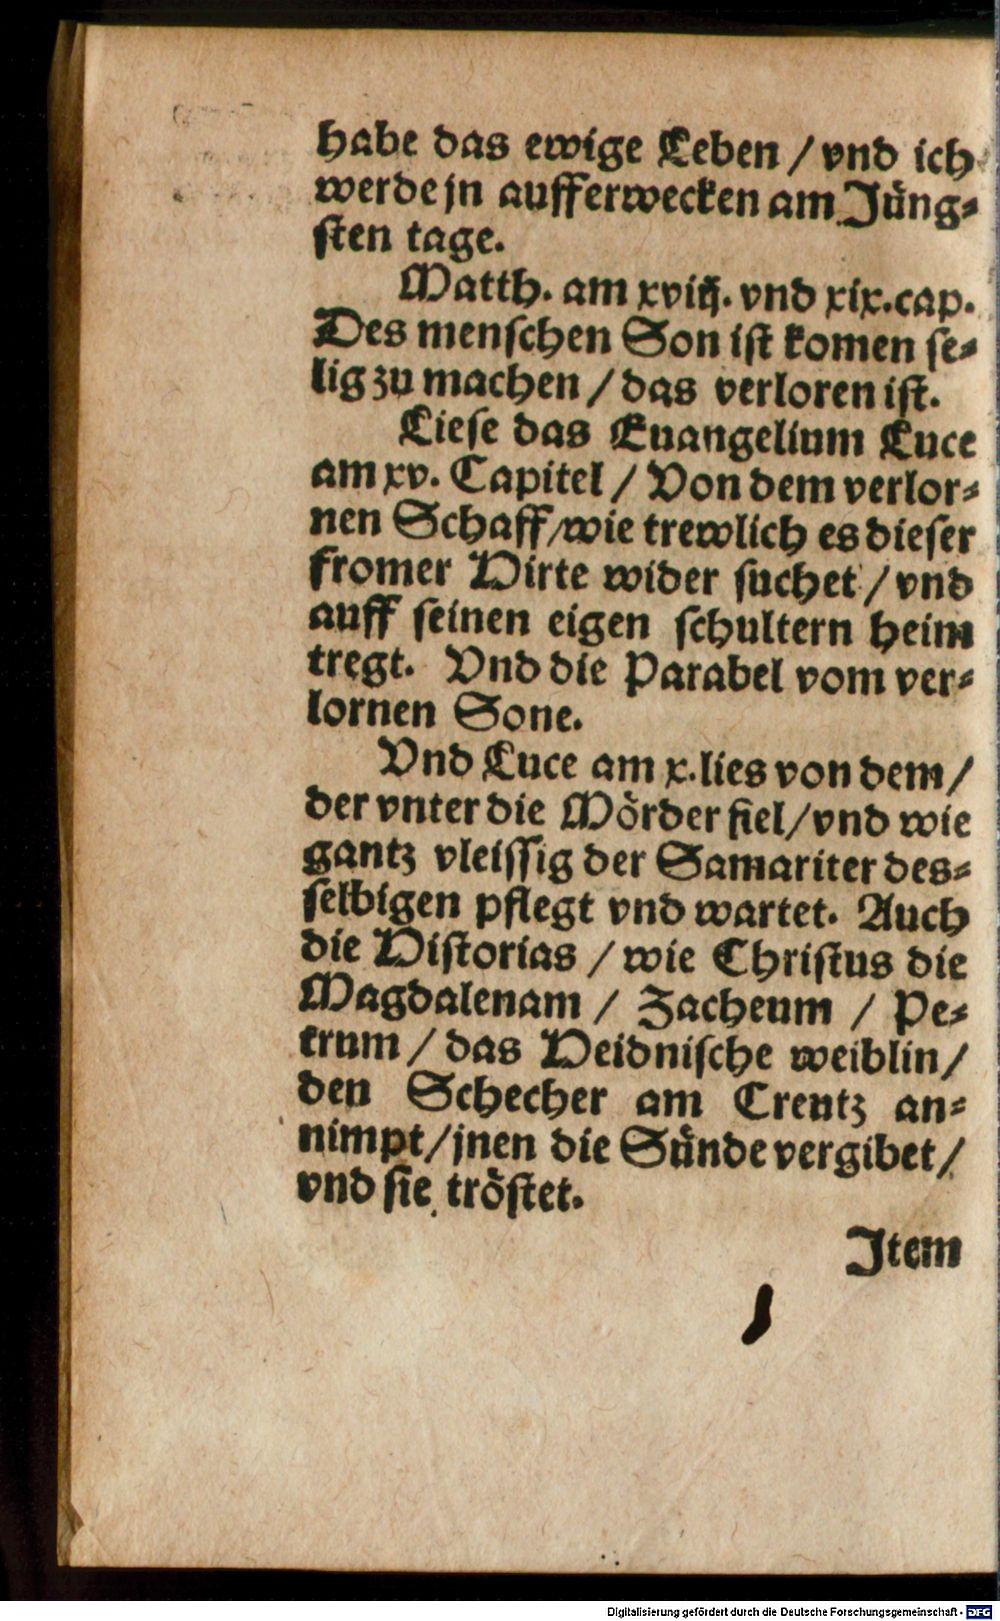 habe das ewige Leben / vnd ich
werde jn aufferwecken am Jüng-
sten tage.
Matth. am xviij. vnd xix. cap.
Des menschen Son ist komen se-
lig zu machen / das verloren ist.
Liese das Euangelium Luce
am xv. Capitel / Von dem verlor-
nen Schaff / wie trewlich es dieser
fromer Hirte wider suchet / vnd
auff seinen eigen schultern heim
tregt. Vnd die Parabel vom ver-
lornen Sone.
Vnd Luce am x. lies von dem /
der vnter die Mörder fiel / vnd wie
gantz vleissig der Samariter des-
selbigen pflegt vnd wartet. Auch
die Historias / wie Christus die
Magdalenam / Zacheum / Pe-
trum / das Heidnische weiblin /
den Schecher am Creutz an-
nimpt / jnen die Sünde vergibet /
vnd sie tröstet.
Item
Digitalisierung gefördert durch die Deutsche Forschungsgemeinschaft - DFG